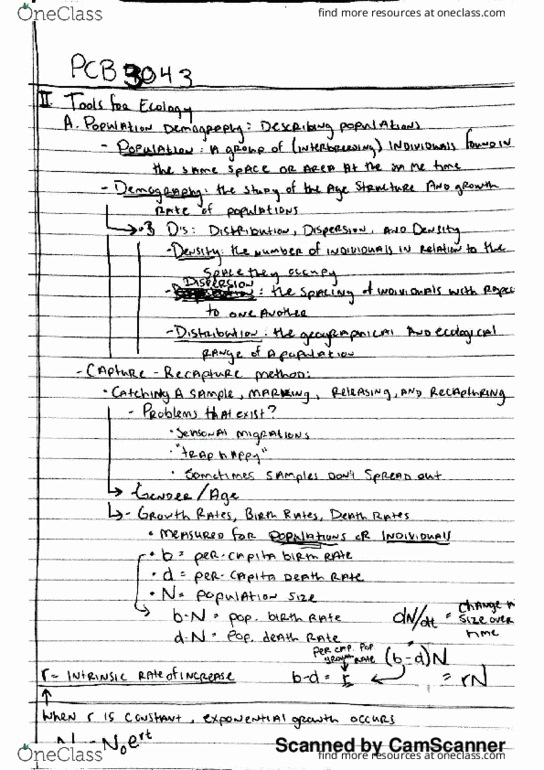 OneClass
find more resources at oneclass.com
PCB 3043
II. Tools for Ecology
A. Population Demography: Describing populations
- Population: A group of (interbreeding) individuals found in
the same space or area at the same time
- Demography: the study of the Age Structure And growth
Rate of populations
3 D's: Distribution, Dispersion, And Density
- Density: the number of individuals in relation to the
space they occupy
- Dispersion: the spacing of individuals with respec
to one another
- Distribution: the geographical And ecological
range of a population
- Capture-Recapture method:
• Catching A sample, marking, releasing, and recapturing
- Problems that exist?
• Seasonal migrations
• "trap happy"
• Sometimes samples don't spread out
Gender/Age
- Growth Rates, Birth Rates, Death Rates
• measured for populations or individuals
• b = per-capita birth rate
• d = per-capita death rate
• N = population size
b·N = pop. birth rate
d·N = pop. death rate
dN/dt = change in size over time
per cap. pop growth rate
(b-d)N
r = intrinsic rate of increase
b-d = r
= rN
When r is constant, exponential growth occurs
N = N₀e^rt
Scanned by CamScanner
OneClass
find more resources at oneclass.com